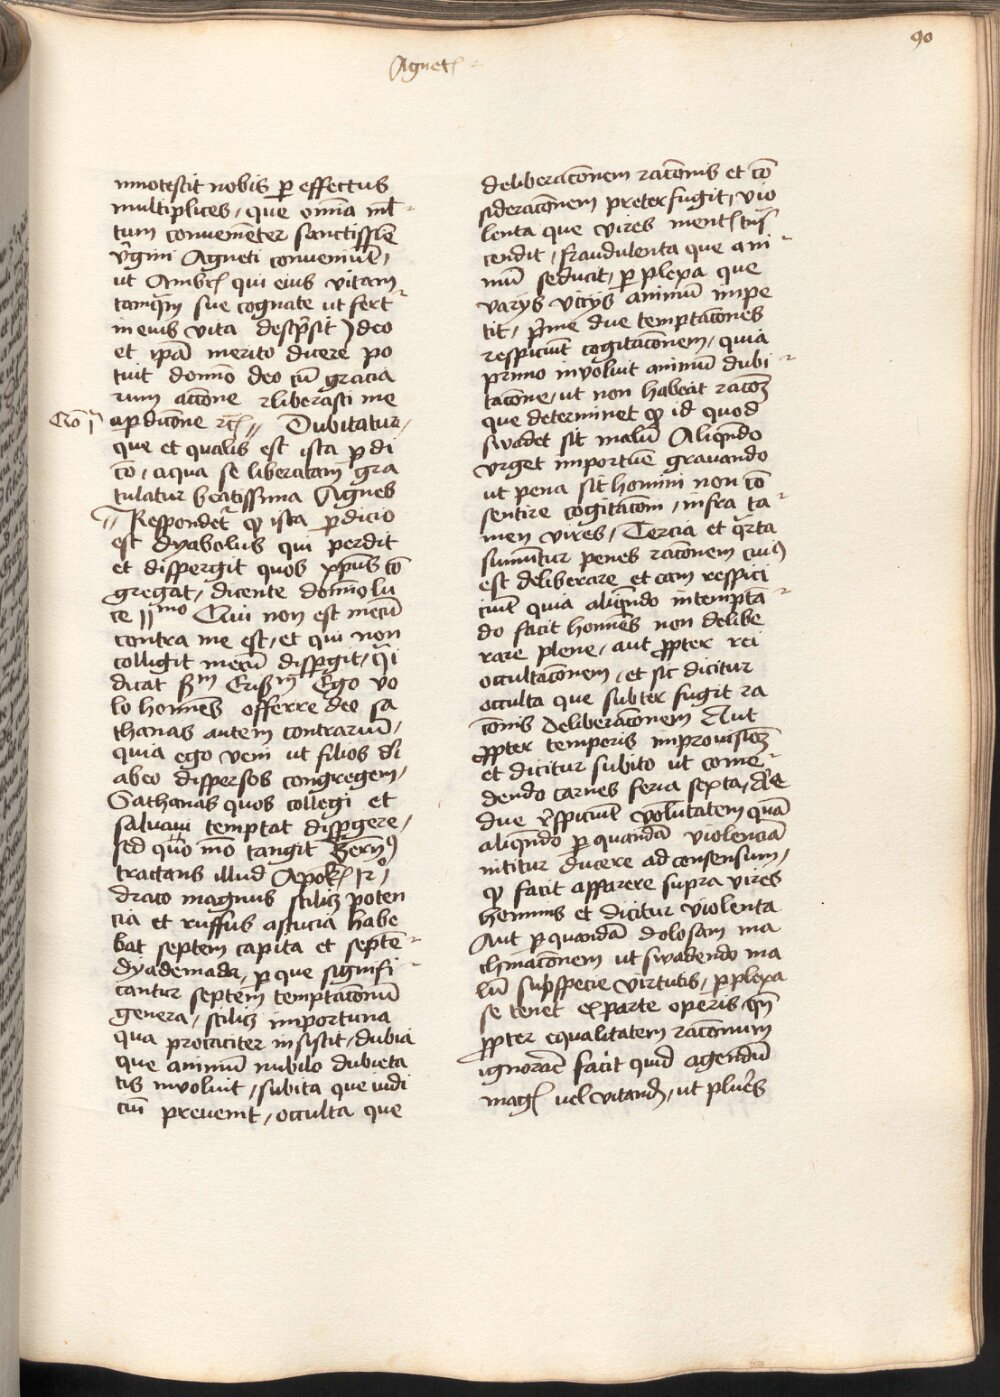 90
Agnet
innotescit nobis ꝑ effectus
multiplices / que om̄ia ml̄
tum convenient̄er sanctissīe
v̓gini Agneti conveniūt /
ut Ambꝭ qui eius vitam
tamqᷓm sue cognate ut fert
in eius vita desc̓psit ) deo
et ip̄ā merito dicere po
tuit domīo deo cū gracia
rum acc̄one ⁊ liberasti me
Qō j aꝑdic̄one ⁊cꝭ // Dubitatur /
que et qualis est ista ꝑdi
c̄o / aqua se liberatam gra
tulatur beatissima Agnes
// Respondet᷑ ꝙ ista ꝑdicio
est dyabolus qui perdit
et dispergit quos xp̄us cō
gregat / dicente domīo lu
ce 11mo Qui non est mecū
contra me est / et qui non
colligit mecū disꝑgit / qͥ
dicat Ego vo
lo homīes offerre deo sa
thanas autem contrariū /
quia ego veni ut filios d̄i
abeo dispersos congregem /
Sathanas quos collegi et
salvavi temptat disꝑgere /
sed quo mō tangit Berñꝰ
tractans illud Apokꝭ 12o /
draco magnus scilicꝫ poten
cia et ruffus astucia habe
bat septem capita et septē
dyademada, ꝑ que signifi
cantur septem temptac̄onū
genera / scilicꝫ importuna
qua procaciter insistit / dubia
que animū nubilo dubieta
tis involvit / subita que iudi
ciū prevenit / occulta que
deliberac̄onem rac̄onis et cō
siderac̄onem preterfugit / vio
lenta que vires mentꝭ tͣns
cendit / fraudulenta que ani
mū seducit / ꝑplexa que
varijs vicijs animū impe
tit / p̓me due temptac̄ones
respiciūt cogitac̄onem / quia
primo involvit animū dubi
tac̄one / ut non habeat rac̄oꝫ
que determinet ꝙ id quod
swadet sit malū Aliqn̄do
urget importūe gravando
ut pena sit homini non cō
sentire cogitac̄oni / infra ta
men vires / Tercia et qᷓrta
sumūtur penes rac̄onem cuiꝰ
est deliberare et eam respici
ciūt quia aliqn̄do in temptā
do facit homīes non delibe
rare plene / aut ꝓpter rei
occultac̄onem / et sic dicitur
occulta que subterfugit ra
c̄onis deliberac̄onem Aut
ꝓpter temporis improvisioꝫ
et dicitur subito ut come
dendo carnes feria sexta / Alīe
due r̓spiciūt volūtatem quā
aliqn̄do ꝑ quandā violenciā
nititur ducere ad consensum /
ꝙ facit apparere supra vires
hominis et dicitur violenta
Aut ꝑ quandā dolosam ma
chinac̄onem ut swadendo ma
lū subspecie virtutis / ꝑplexa
se tenet exparte operis / qn̄
ꝓpter equalitatem rac̄onum
ignorāc̄ facit quid agendū
magꝭ vel vitandū / ut plur̓es